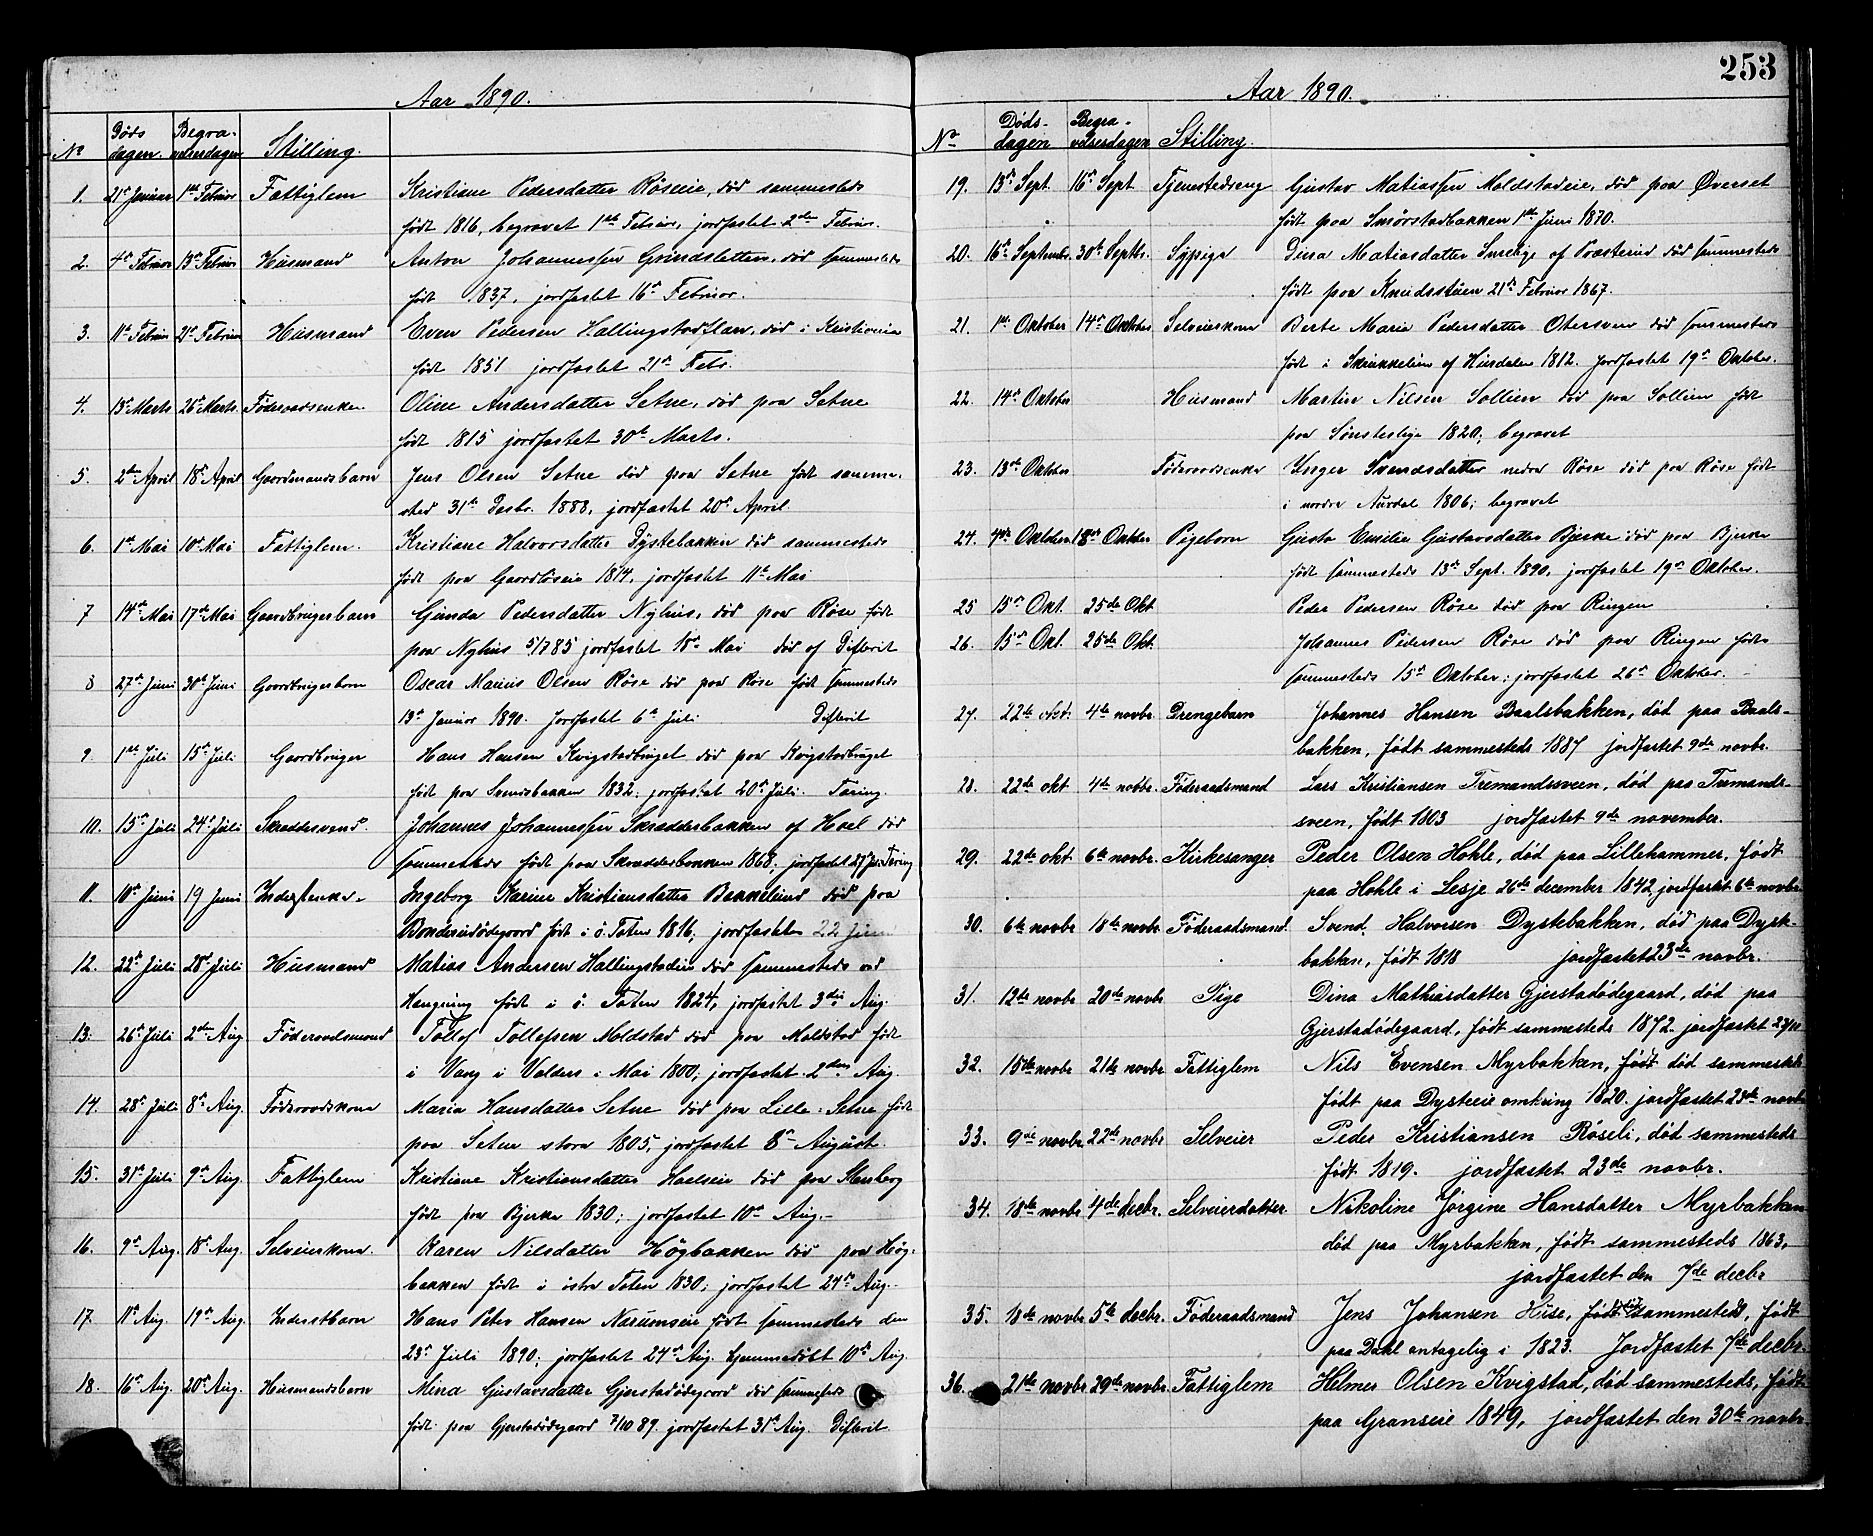 253
Aar 1890.
No Døds dagen. Begravelsesdagen Stilling.
1. 21de Januar 1ste Februar Fattiglem Kristiane Pedersdatter Røseie, død sammesteds
født 1816, begravet 1ste Februar, jordfæstet 2den Februar.
2. 4de Februar 13de Februar Husmand Anton Johannessen Grindsletten, død sammesteds
født 1837, jordfæstet 16de Februar.
3. 11te Februar 21de Februar Husmand Even Pedersen Hallingstadflan, død i Kristiania
født 1851 jordfæstet 21de Febr.
4. 18de Marts 26de Marts. Føderaadsenke. Oline Andersdatter Setne, død paa Setne
født 1815 jordfæstet 30te Marts.
5. 2den April 18de April Gaardmandsbarn Jens Olsen Setne død paa Setne født samme-
sted 31te Decbr. 1888, jordfæstet 20de April.
6. 1ste Mai 10de Mai Fattiglem. Kristiane Halvorsdatter Dystebakken død sammesteds
født paa Gaardløseie 1814, jordfæstet 11te Mai
7 14de Mai 17de Mai Gaardbrugerbarn Gunda Pedersdatter Nyhus, død paa Røse født
paa Nyhus 5/7 85 jordfæstet 18de Mai død af Difterit
8 27de Juni 30te Juni Gaardbrugerbarn Oscar Marius Olsen Røse død paa Røse født sammesteds
13de Januar 1890. Jordfæstet 6te Juli. Difterit
9. 1ste Juli 15de Juli Gaardbruger Hans Hansen Kvigstadbruget død paa Kvigstadbruget
født paa Svendsbakken 1832; jordfæstet 20de Juli. Tæring.
10. 15de Juli 24de Juli Skræddersvend. Johannes Johannessen Skrædderbakken af Hoel død
sammesteds født paa Skrædderbakken 1868; jordfæstet 27 Juli Tæring
11. 10de Juni 19 Juni Inderstenke. Ingeborg Karine Kristiansdatter Bakkelund død paa
Bondereiødegaard født i ö. Toten 1816, jordfæstet 22 Juni
12. 22de Juli 28de Juli Husmand Matias Andersen Hallingstadeie død sammesteds ved
Hængning født i ö. Toten 1824, jordfæstet 3die Aug.
13. 26de Juli 2den Aug. Føderaadsmand Tollef Tollefsen Moldstad død paa Moldstad født
i Vang i Valders i Mai 1800; jordfæstet 2den Aug.
14. 28de Juli 8de Aug. Føderaadskone Maria Hansdatter Setne død paa Lille-Setne født
paa Seten store 1805, jordfæstet 8de August.
15. 31te Juli 9de Aug. Fattiglem Kristiane Kristiansdatter Hoelseie død paa Stenberg
født paa Bjerke 1830; jordfæstet 10de Aug.
16. 9de Aug. 18de Aug. Selveierkone. Karen Nilsdatter Høgbakken død paa Høg-
bakken født i østre Toten 1830; jordfæstet 24de Aug.
17. 11te Aug. 19de Aug. Inderstbarn Hans Peter Hansen Narumseie født sammesteds den
23de Juli 1890; jordfæstet 24de Aug. hjemmedøbt 10de Aug.
18. 16de Aug. 20de Aug. Husmandsbarn Mina Gustavsdatter Gjerstadødegaard død sammesteds
født paa Gjerstadødegaard 7/10 89. jordfæstet 31te Aug. Difterit
Aar 1890.
No Døds-dagen Begra-velsesdagen Stilling.
19. 13de Sept. 16de Sept. Tjenestedreng Gustav Matiassen Moldstadeie, død paa Øverset
født paa Smørstadbakken 1ste Juni 1870.
20. 16de Septembr. 30te Septbr. Sypige Dina Matiasdatter Smeliye af Præsterud død sammesteds
født paa Knudsstuen 21de Februar 1867.
21. 1ste Oktober 14de Oktober Selveierkone Berte Marie Pedersdatter Otersveen død sammesteds
født i Skrukkelien af Hurdalen 1812. jordfæstet 19de Oktober.
22. 14de Oktober Husmand Martin Nilsen Sollien død paa Sollien født
paa Sønsteslye 1820; begravet
23. 13de Oktober Føderaadsenke Inger Svendsdatter nedre Røse død paa Røse født
i nordre Aurdal 1806; begravet
24. 4de Oktober 18de Oktober Pigebarn Gusta Emilie Gustavsdatter Bjerke død paa Bjerke
født sammesteds 13de Sept. 1890, jordfæstet 19de Oktober.
25 15de Okt. 25de Okt Peder Pedersen Røse død paa Ringen
26. 15de Okt. 25de Okt. Johannes Pedersen Røse død paa Ringen fødte
sammesteds 15de Oktober; jordfæstet 26de Oktober.
27. 22de okt. 4de novbr. Drengebarn Johannes Hansen Baalsbakken, død paa Baals-
bakken, født sammesteds 1887 jordfæstet 9de novbr.
28. 22de okt 4de novbr. Føderaadsmand Lars Kristiansen Tremandssveen, død paa Tremands-
sveen, født 1803 jordfæstet 9de november.
29. 22de okt 6te novbr. Kirkesanger Peder Olsen Hohle, død paa Lillehammer, født
paa Hohle i Lesje 26de december 1842, jordfæstet 6te novbr.
30. 6te novbr 18de novbr Føderaadsmand. Svend Halvorsen Dystebakken, død paa Dyste-
bakken, født 1818 jordfæstet 23de novbr.
31. 12te novbr 20de novbr Pige Dina Mathiasdatter Gjerstadødegaard, død paa
Gjerstadødegaard, født sammesteds 1872. jordfæstet 23/11
32. 15de novbr 21de novbr Fattiglem Nils Evensen Myrbakken, født død sammesteds
født paa Dysteeie omkring 1820. jordfæstet 23de novbr
33. 9de novbr 22de novbr Selveier Peder Kristiansen Røseli, død sammesteds
født 1819. jordfæstet 23de novbr.
34. 18de novbr 4de decbr. Selveierdatter Nikoline Jørgine Hansdatter Myrbakken
død paa Myrbakken, født sammesteds 1863,
jordfæstet den 7de decbr
35. 18de novbr 5te decbr. Føderaadsmand Jens Johansen Huse, født død sammesteds, født
paa Dahl antagelig i 1823. Jordfæstet 7de decbr.
36. 21de novbr 29de novbr Fattiglem Helmer Olsen Kvigstad, død sammesteds, født
paa Granseie 1849, jordfæstet den 30te novbr.